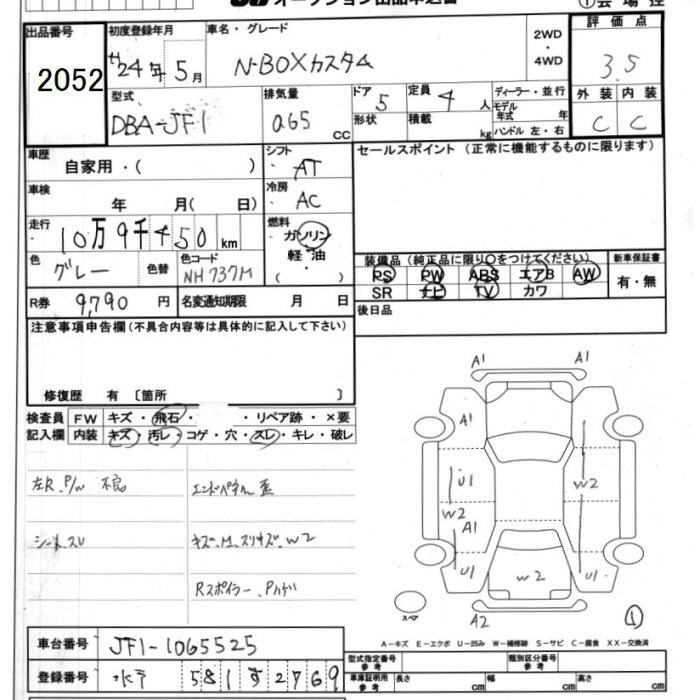 オークション出品申込書
①会場控
出品番号 2052
初度登録年月 H24年5月
車名・グレード N-BOXカスタム
2WD・4WD
評価点 3.5
外装 C 内装 C
型式 DBA-JF1
排気量 065 CC
ドア 5 形状
定員 4 人 積載 kg
ディーラー・並行
モデル年式 年
ハンドル 左・右
車歴 自家用・( )
シフト AT
セールスポイント (正常に機能するものに限ります)
車検 年 月( 日)
冷房 AC
走行 10万9千450km
燃料 ガソリン 軽油 ( )
色 グレー 色替
色コード NH737M
装備品 (純正品に限り○をつけてください)
新車保証書
PS PW ABS エアB AW
有・無
SR ナビ TV カワ
R券 9,790円
名変通知期限 月 日
後日品
注意事項申告欄 (不具合内容等は具体的に記入して下さい)
修復歴 有 〔箇所 〕
検査員記入欄
FW キズ・飛石・ ・リペア跡・×要
内装 キズ・汚レ・コゲ・穴・スレ・キレ・破レ
左R.P/w 不良
エンドパネル歪
シートスレ
キズ、M、スリキズ、W2
Rスポイラー、Pハゲ
A1 A1
A1
U1 W2
W2
A1
U1 W2 U1
スペア A2 ①
A-キズ E-エクボ U-凹み W-補修跡 S-サビ C-腐食 XX-交換済
車台番号 JF1-1065525
型式指定番号 参考
類別区分番号 参考
登録番号 水戸 581す2769
車庫証明用 参考 長さ cm 幅 cm 高さ cm